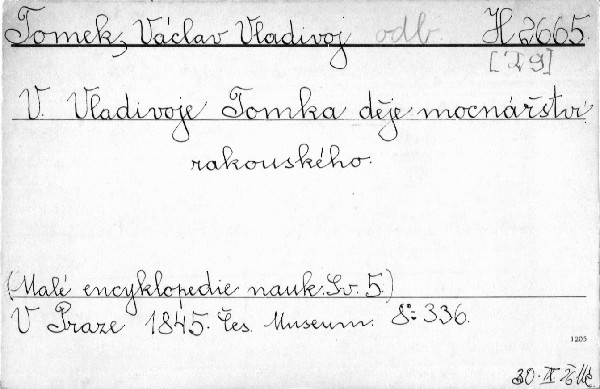 Tomek, Václav Vladivoj odb. H 2665.
[29]
V. Vladivoje Tomka děje mocnářství
rakouského.
(Malé encyklopedie nauk. Sv. 5.)
V Praze 1845. Čes. Museum. 8° 336.
1205
30. IX